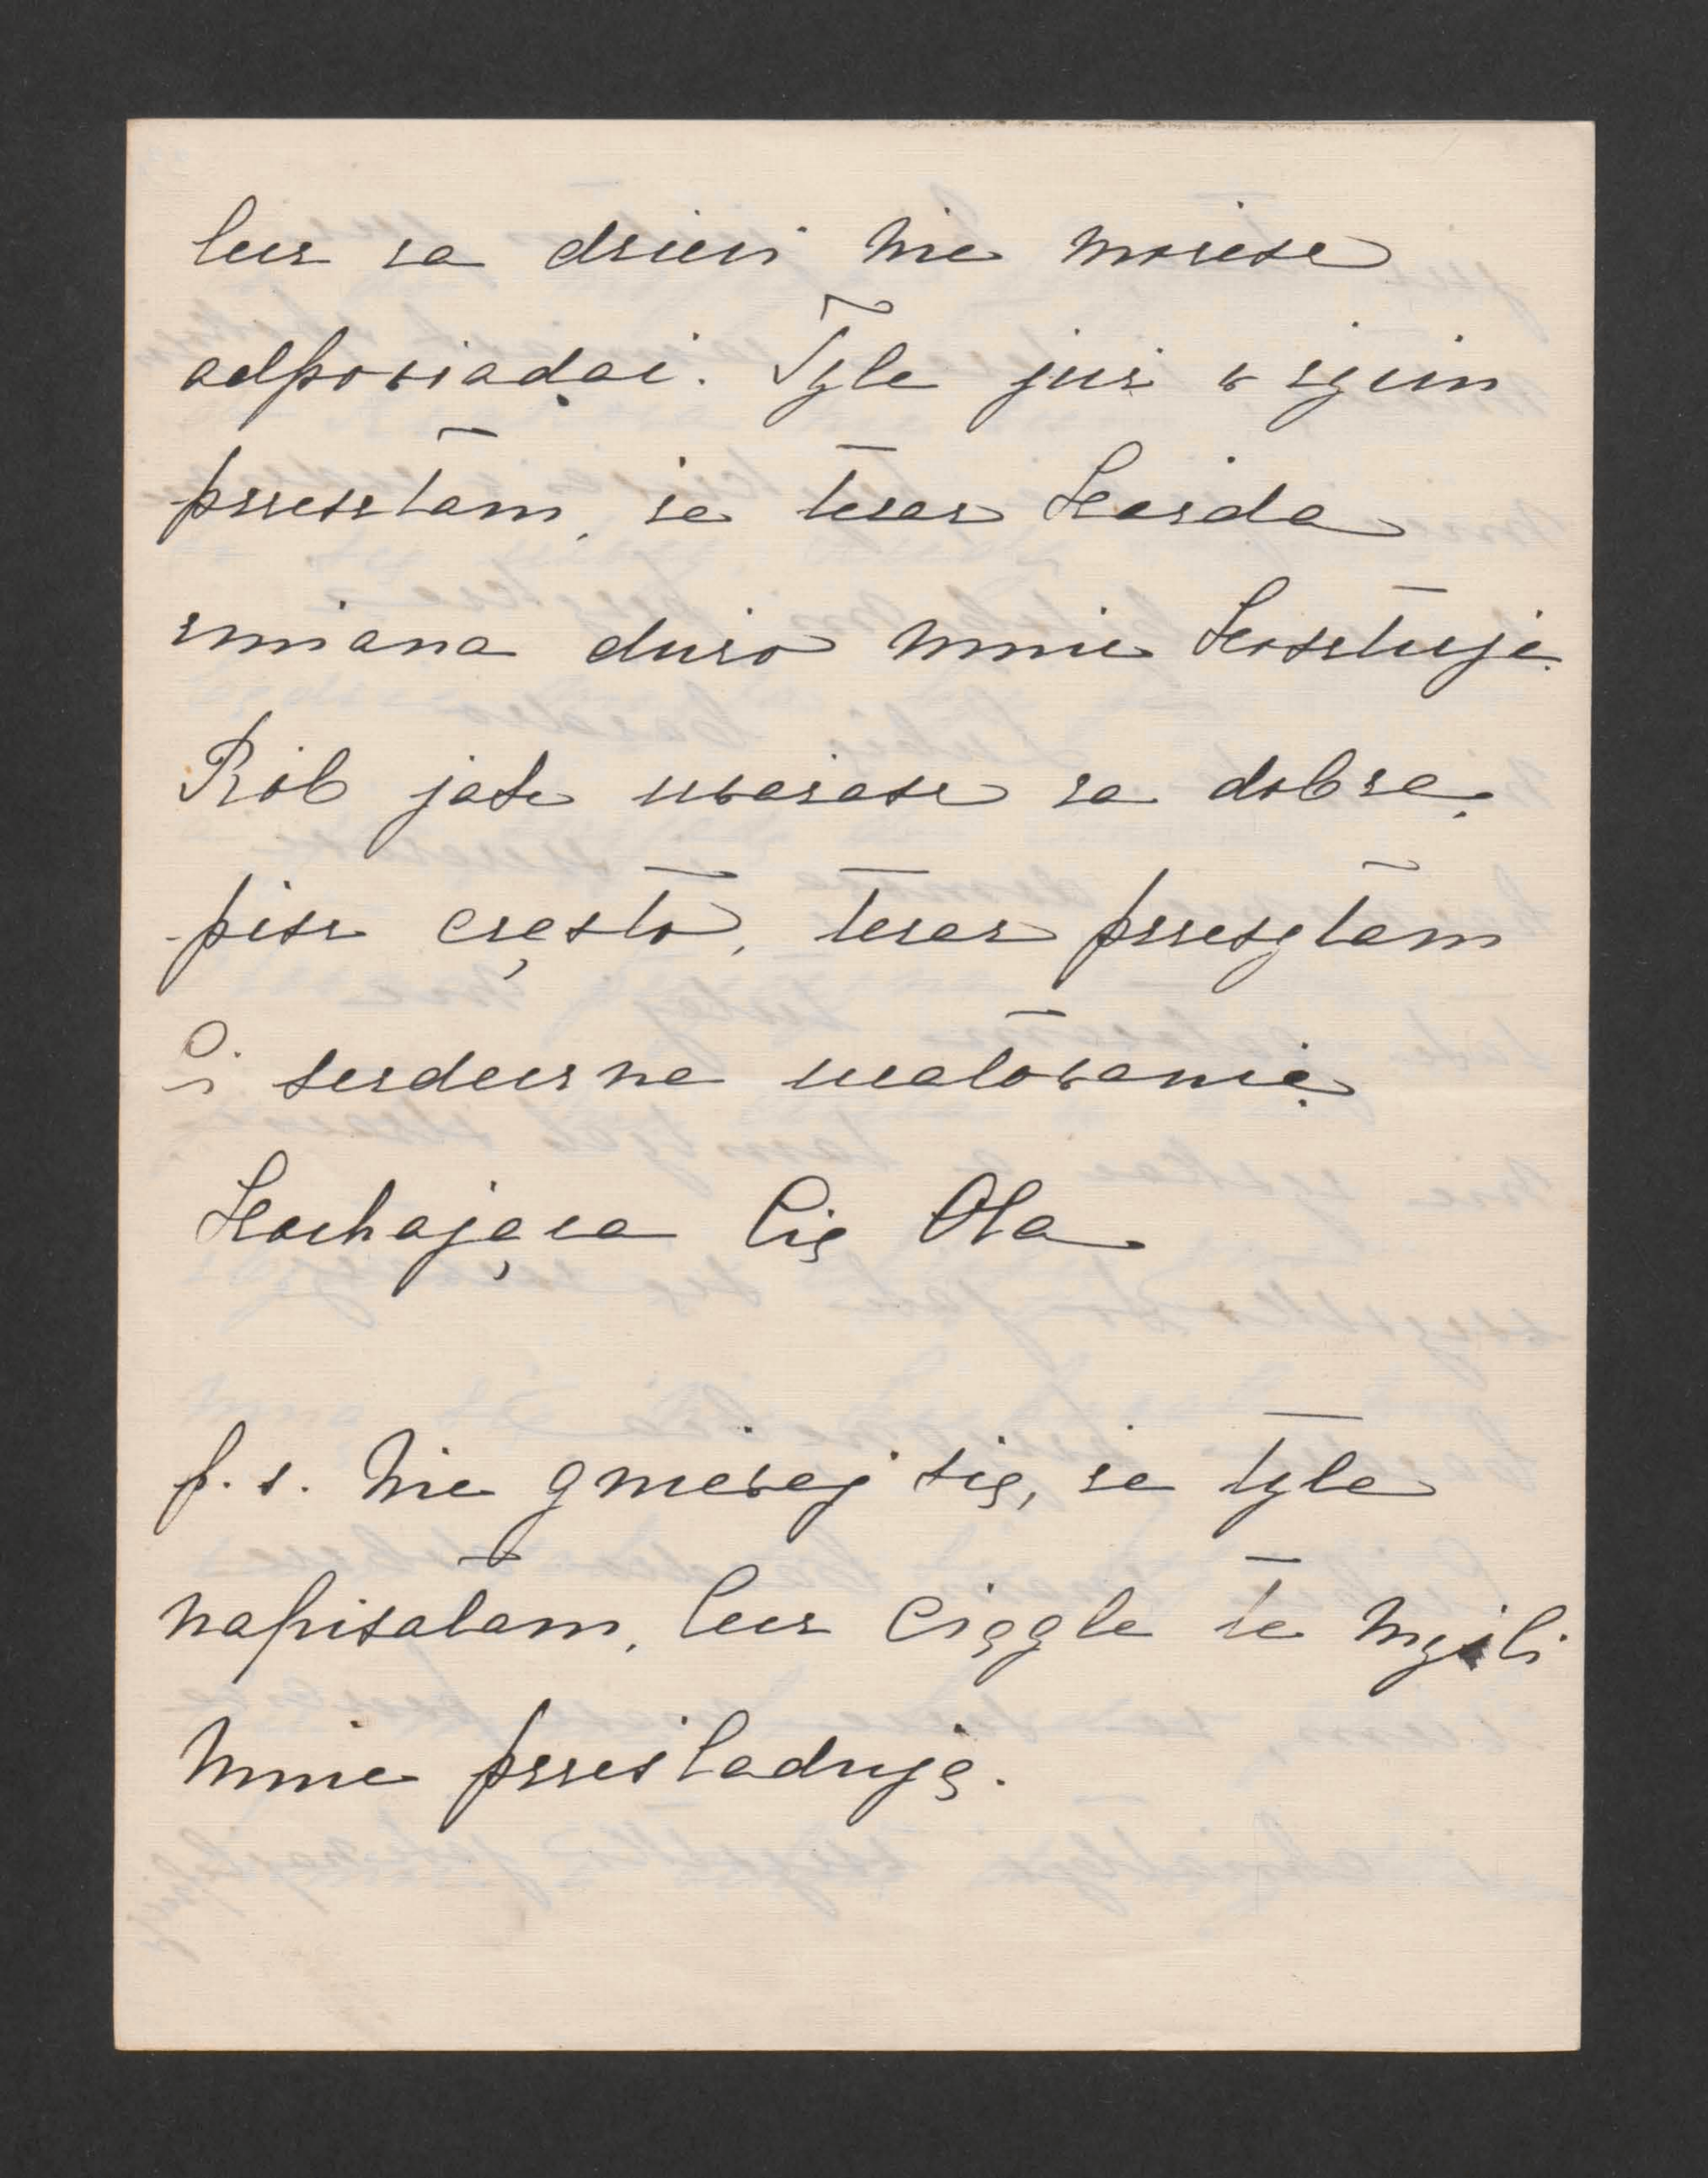 lecz za dzieci nie możesz
odpowiadać. Tyle już w życiu
przeszłam, że teraz każda
zmiana dużo mnie kosztuje.
Rób jak uważasz za dobrze,
pisz często, teraz przesyłam
Ci serdeczne ucałowania
Kochająca Cię Ola
p.s. Nie gniewaj się, że tyle
napisałam, lecz ciągle te myśli
mnie prześladują.